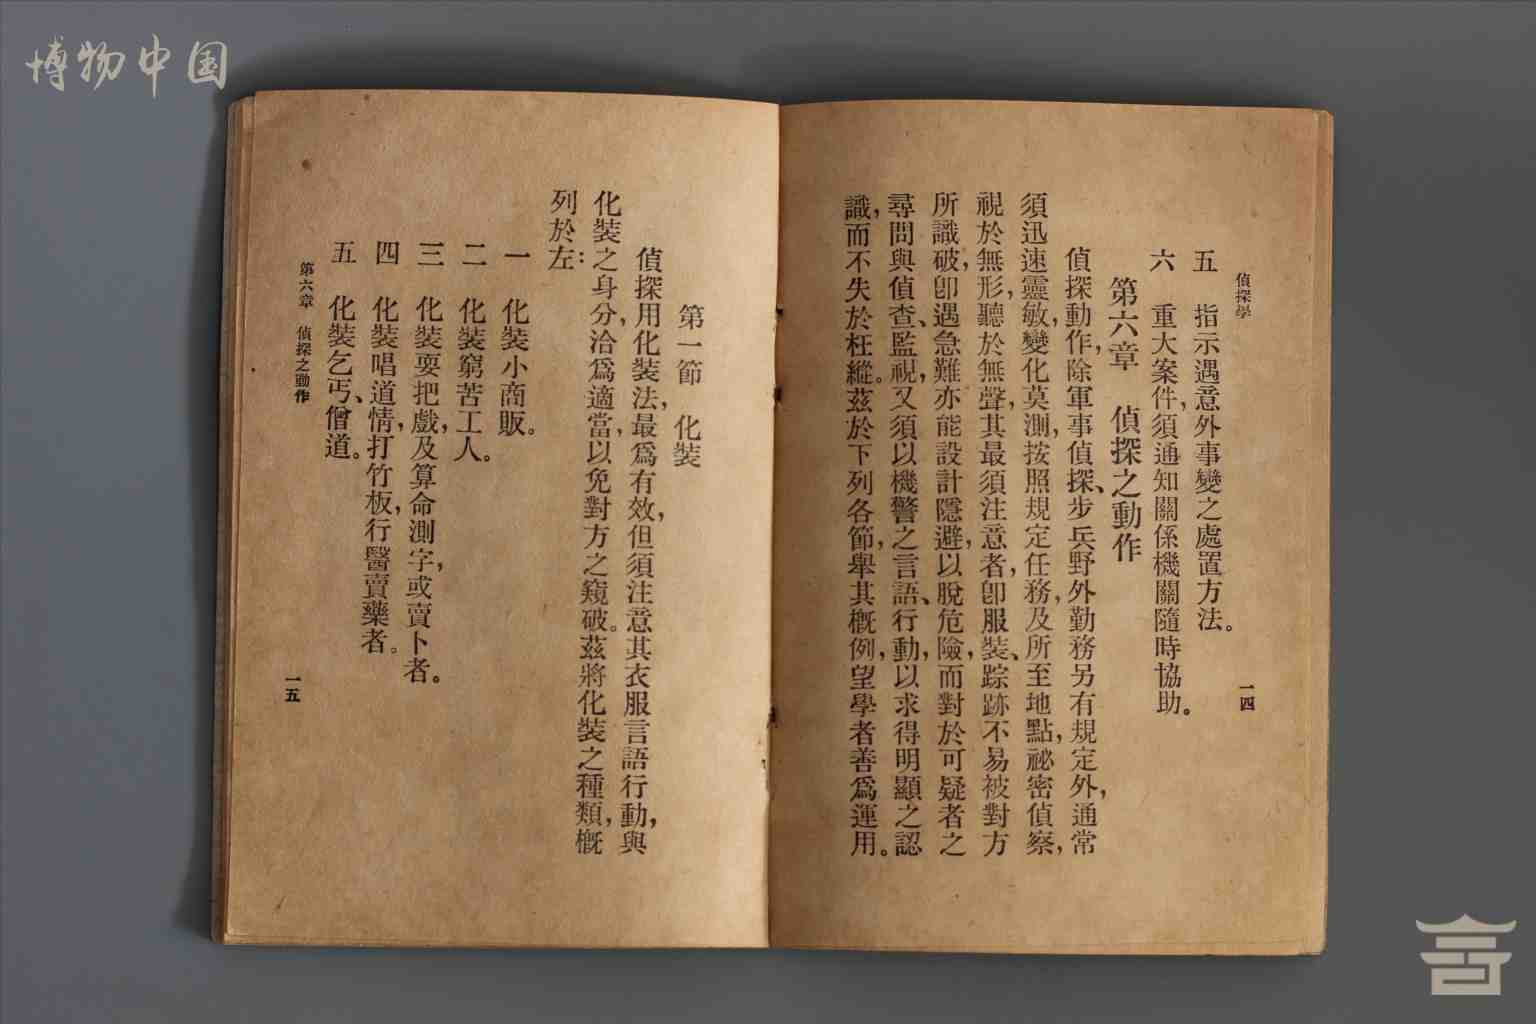 博物中国
偵探學
一四
五　指示遇意外事變之處置方法。
六　重大案件，須通知關係機關隨時協助。
第六章　偵探之動作
偵探動作，除軍事偵探、步兵野外勤務另有規定外，通常
須迅速靈敏，變化莫測，按照規定任務，及所至地點，祕密偵察，
視於無形，聽於無聲，其最須注意者，卽服裝、踪跡不易被對方
所識破，卽遇急難，亦能設計隱避，以脫危險，而對於可疑者之
尋問與偵查、監視，又須以機警之言語、行動，以求得明顯之認
識，而不失於枉縱。茲於下列各節，舉其概例，望學者善爲運用。
第一節　化裝
偵探用化裝法，最爲有效，但須注意其衣服言語行動，與
化裝之身分，洽爲適當，以免對方之窺破。茲將化裝之種類，概
列於左：
一　化裝小商販。
二　化裝窮苦工人。
三　化裝耍把戲，及算命測字，或賣卜者。
四　化裝唱道情，打竹板，行醫賣藥者。
五　化裝乞丐、僧道。
第六章　偵探之動作
一五